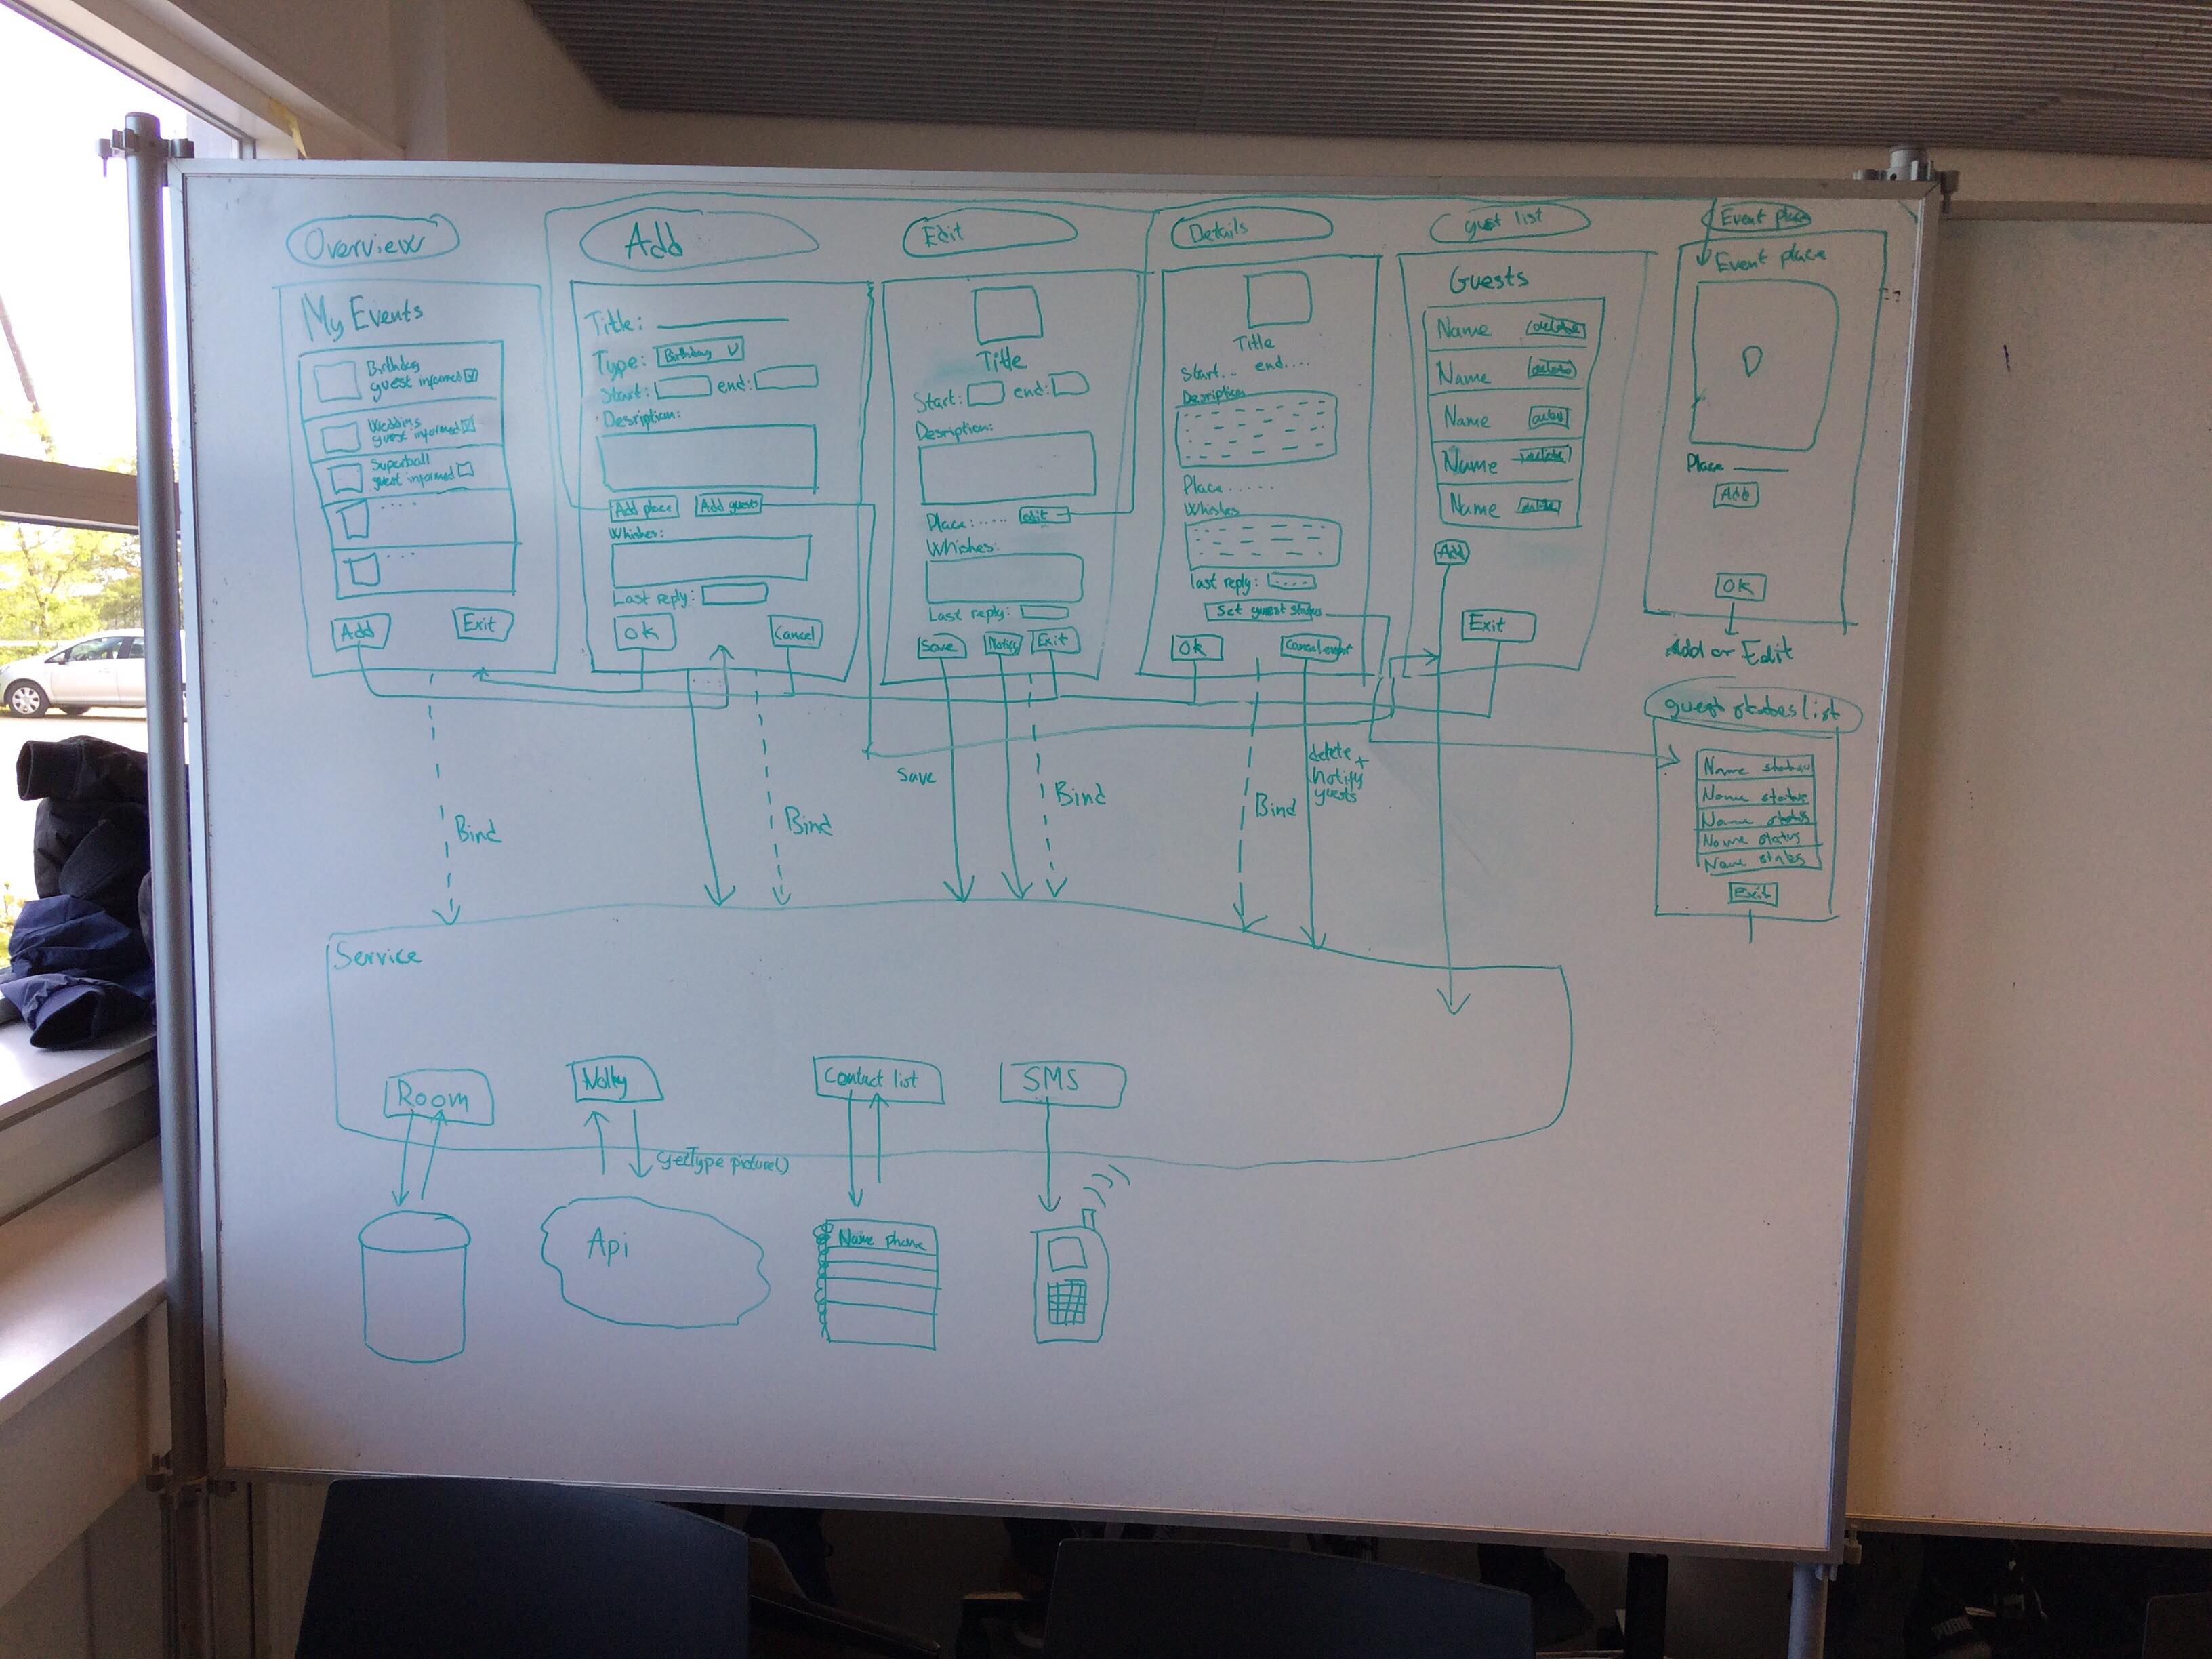 Overview
My Events
Birthday
guest informed
Wedding
guest informed
Superball
guest informed
.....
....
Add
Exit
Add
Title:
Type: Birthday
Start: end:
Desription:
Add place Add guests
Whishes:
Last reply:
OK Cancel
Edit
Title
Start: end:
Desription:
Place: ..... edit
Whishes:
Last reply:
Save Notify Exit
Details
Title
Start... end....
Desription
Place .....
Whishes
last reply: ....
Set guest status
Ok Cancel event
guest list
Guests
Name delete
Name delete
Name
Name delete
Name
Add
Exit
Event place
Event place
Place
Add
OK
Add or Edit
guest states list
Name status
Name status
Name status
Name status
Name states
Exit
Bind
Bind
Save
Bind
Bind
delete +
Notify
guests
Service
Room
Contact list
SMS
getType picture()
Api
Name phone